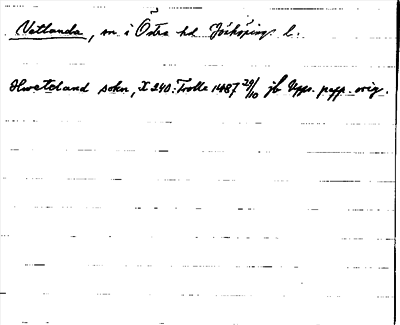 Vetlanda, sn i Östra hd Jönköpings l.
Hwetoland sokn, X 240: Trolle 1487 29/10 jb Upps. papp. orig.